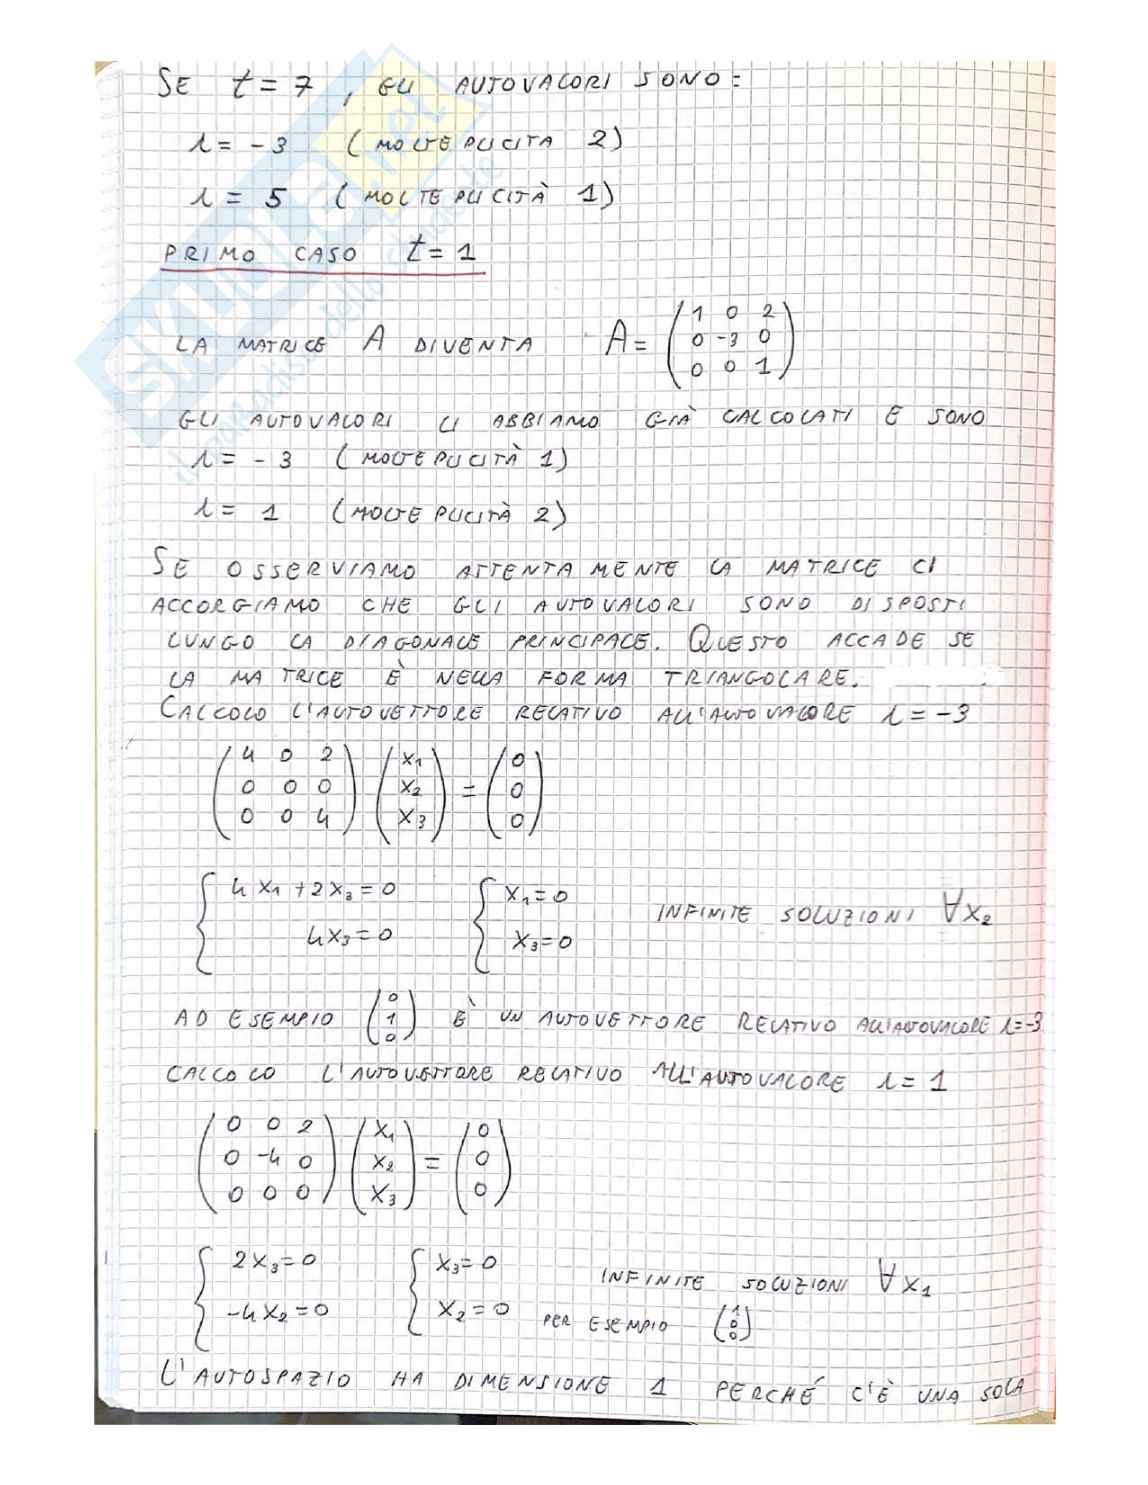 SE t = 7 , GLI AUTOVALORI SONO:
λ = -3 (MOLTEPLICITÀ 2)
λ = 5 (MOLTEPLICITÀ 1)
PRIMO CASO t = 1
LA MATRICE A DIVENTA A = (1 0 2
0 -3 0
0 0 1)
GLI AUTOVALORI LI ABBIAMO GIÀ CALCOLATI E SONO
λ = -3 (MOLTEPLICITÀ 1)
λ = 1 (MOLTEPLICITÀ 2)
SE OSSERVIAMO ATTENTAMENTE LA MATRICE CI
ACCORGIAMO CHE GLI AUTOVALORI SONO DISPOSTI
LUNGO LA DIAGONALE PRINCIPALE. QUESTO ACCADE SE
LA MATRICE È NELLA FORMA TRIANGOLARE.
CALCOLO L'AUTOVETTORE RELATIVO ALL'AUTOVALORE λ = -3
(4 0 2) (x₁) (0)
(0 0 0) (x₂) = (0)
(0 0 4) (x₃) (0)
{ 4x₁ + 2x₃ = 0 { x₁ = 0 INFINITE SOLUZIONI ∀x₂
4x₃ = 0 x₃ = 0
AD ESEMPIO (0 1 0) È UN AUTOVETTORE RELATIVO ALL'AUTOVALORE λ = -3
CALCOLO L'AUTOVETTORE RELATIVO ALL'AUTOVALORE λ = 1
(0 0 2) (x₁) (0)
(0 -4 0) (x₂) = (0)
(0 0 0) (x₃) (0)
{ 2x₃ = 0 { x₃ = 0 INFINITE SOLUZIONI ∀x₁
-4x₂ = 0 x₂ = 0 PER ESEMPIO (1 0 0)
L'AUTOSPAZIO HA DIMENSIONE 1 PERCHÉ C'È UNA SOLA
SKUOLA.net
il paradiso dello studente